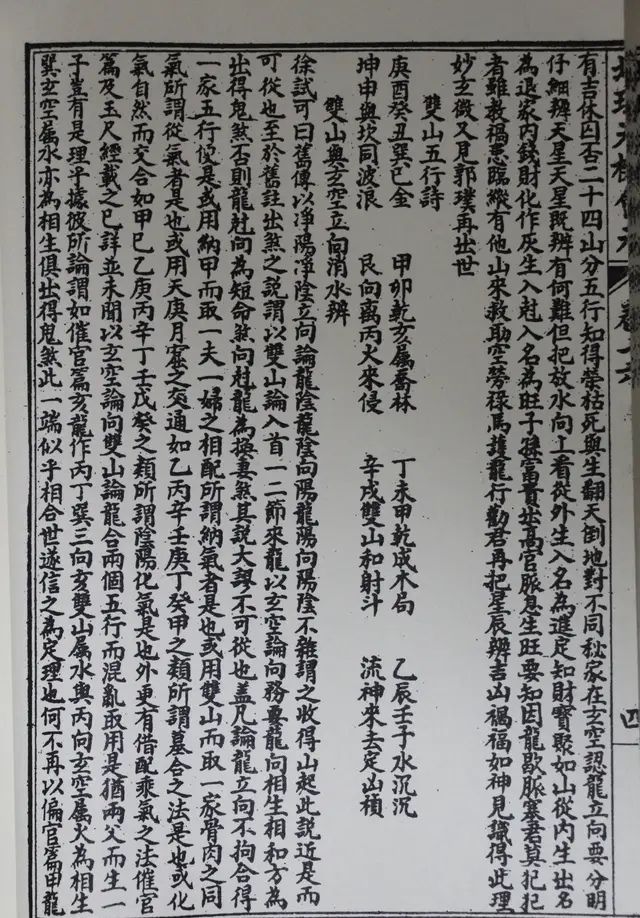 有吉休囚否二十四山分五行知得榮枯死與生翻天倒地對不同秘密在玄空認龍立向要分明
仔細辨天星天星既辨有何難但把放水向上看從外生入名為進定知財寶聚如山從內生出名
為退家內錢財化作灰生入尅入名為旺子孫富貴出高官脈息生旺要知因龍歇脈寒君莫犯犯
者雖救禍患臨縱有他山來救助空勞祿馬護龍行勸君再把星辰辨吉凶禍福如神見識得此理
妙玄微又見郭璞再出世
雙山五行詩
庚酉癸丑巽巳金 甲卯乾亥屬喬林 丁未甲乾成木局 乙辰壬子水沉沉
坤申與坎同波浪 艮向离丙火來侵 辛戌雙山和射斗 流神來去定凶禎
雙山與玄空立向消水辨
徐試可曰舊傳以淨陽淨陰立向論龍陰龍陰向陽龍陽向陽陰不雜謂之收得山起此說近是而
可從也至於舊註出煞之說謂以雙山論入首一二節來龍以玄空論向務要龍向相生相和方為
出得鬼煞否則龍尅向為短命煞向尅龍為損妻煞其說大謬不可從也盖凡論龍立向不拘合得
一家五行便是或用納甲而取一夫一婦之相配所謂納氣者是也或用雙山而取一家骨肉之同
氣所謂從氣者是也或用天庚月窟之交通如乙丙辛壬庚丁癸甲之類所謂墓合之法是也或化
氣自然而交合如甲巳乙庚丙辛丁壬戊癸之類所謂陰陽化氣是也外更有借配乘氣之法催官
篇及玉尺經載之巳詳並未聞以玄空論向雙山論龍合兩個五行而混亂取用是猶兩父而生一
子豈有是理乎據彼所論謂如催官篇亥龍作丙丁巽三向亥雙山屬水與丙向玄空屬火為相生
巽玄空屬水亦為相生俱出得鬼煞此一端似乎相合世遂信之為定理也何不再以偏官篇甲龍
四